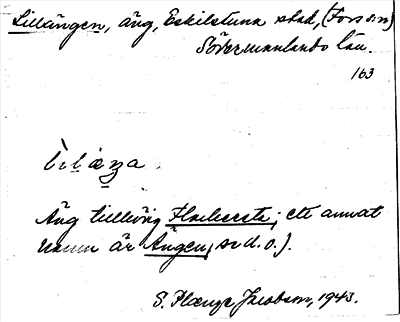 Lillängen, äng, Eskilstuna stad, (Fors sn)
Södermanlands län.
163
Äng tillhörig ; ett annat
namn är Ängen, se d. o.).
S. Jacobson, 1943.